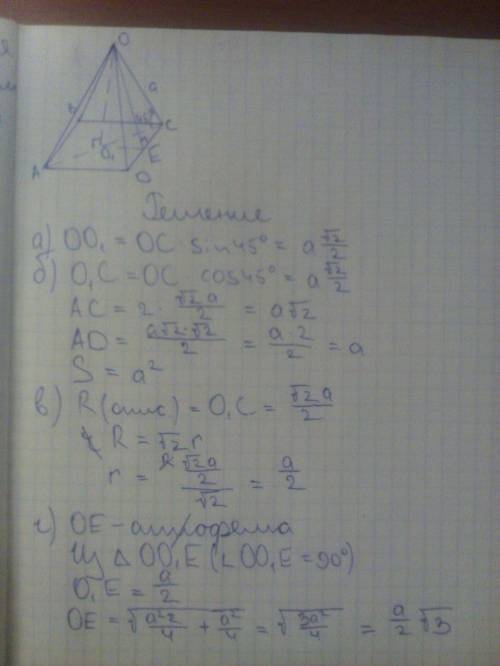 O
a
B
45°
C
O₁
E
A
D
Решение
а) OO₁ = OC · sin45° = a √2/2
б) O₁C = OC · cos45° = a √2/2
AC = 2 · √2a/2 = a√2
AD = a√2·√2/2 = a·2/2 = a
S = a²
в) R(опис) = O₁C = √2a/2
R = √2 r
r = √2a/2 / √2 = a/2
г) OE - апофема
Из △ OO₁E (∠OO₁E = 90°)
O₁E = a/2
OE = √(a²2/4 + a²/4) = √(3a²/4) = a/2 √3